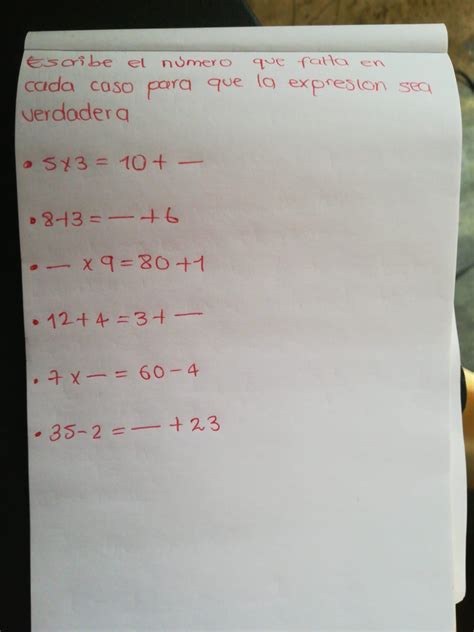 Escribe el número que falta en
cada caso para que la expresion sea
verdadera
• 5x3 = 10 + —
• 8+3 = — + 6
• — x 9 = 80 + 1
• 12 + 4 = 3 + —
• 7 x — = 60 - 4
• 35 - 2 = — + 23